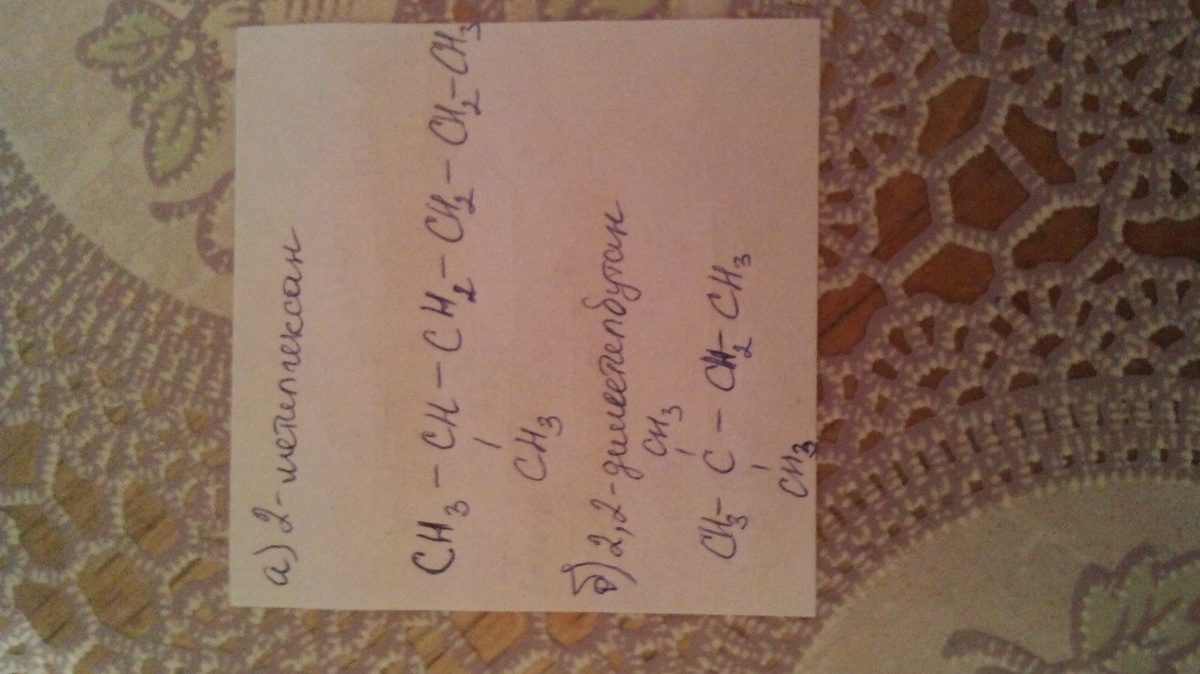 а) 2-метилгексан
CH3 – CH – CH2 – CH2 – CH2 – CH3
CH3
б) 2,2-диметилбутан
CH3
CH3 – C – CH2 – CH3
CH3